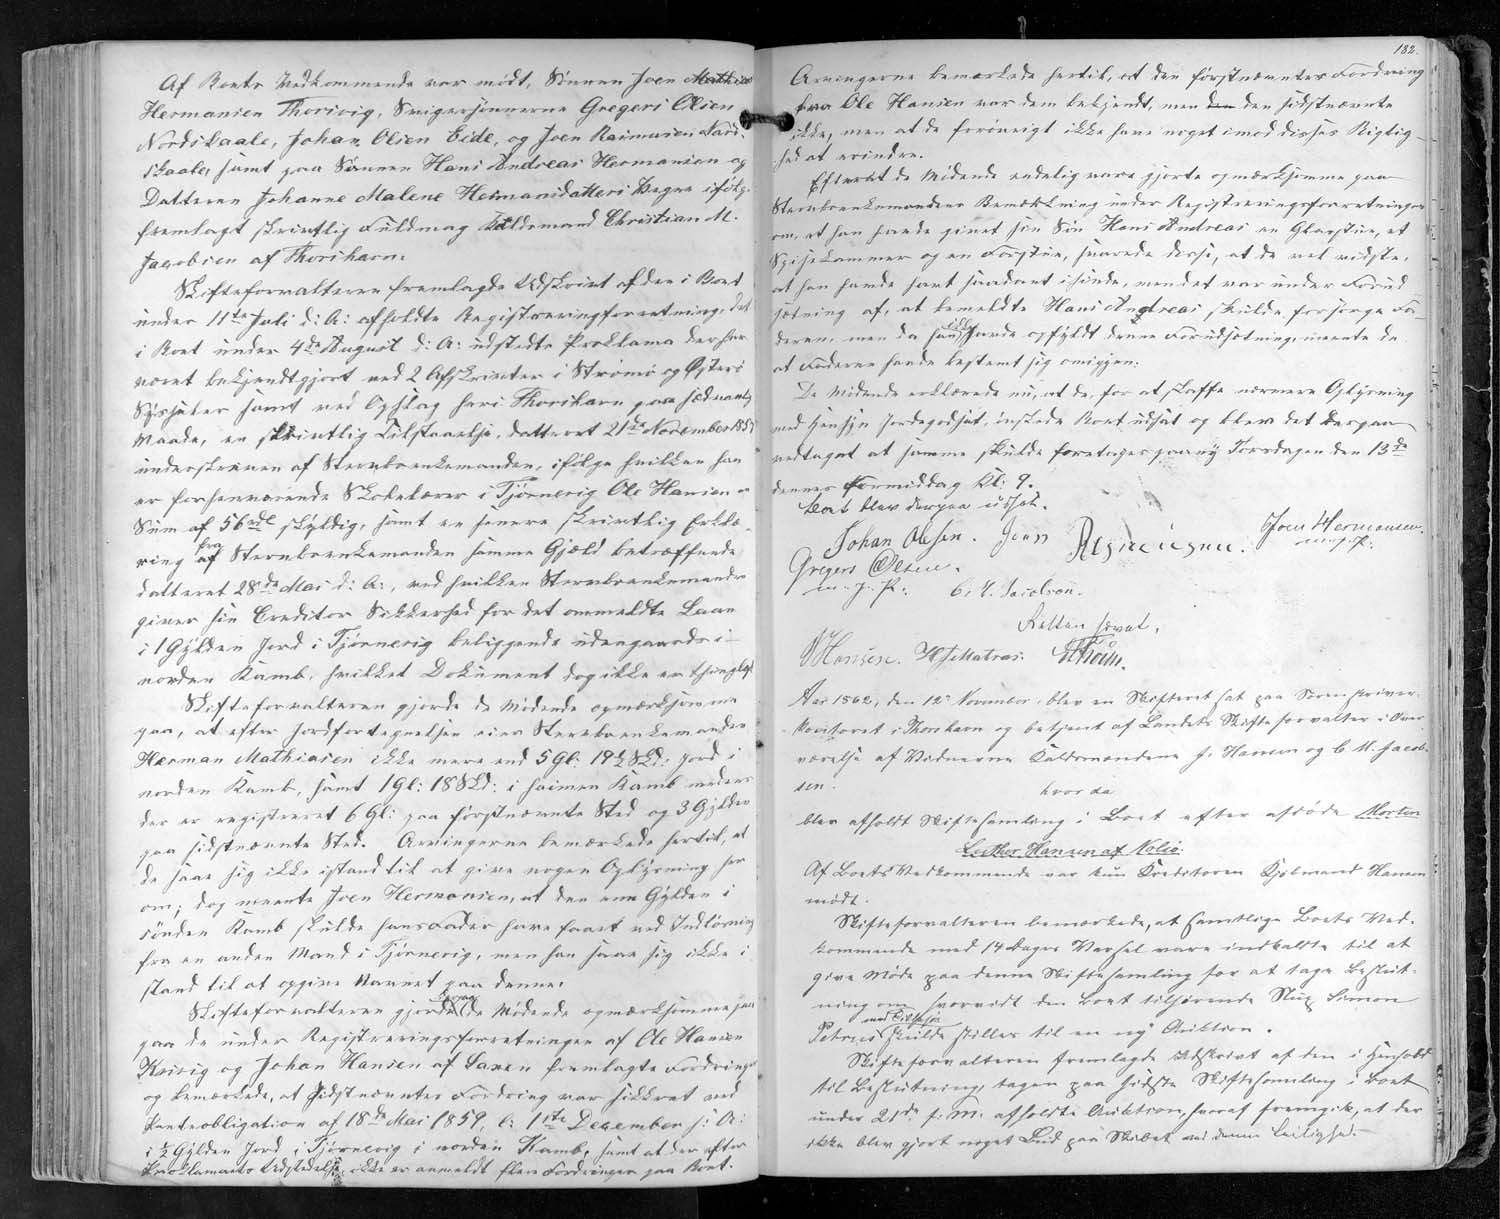 Af Boets Vedkommende var mødt, Sønnen Joen Mathias
Hermansen Thorsvig, Svigersønnerne Gregers Olsen
Nordskaale, Johan Olsen Eide, og Joen Rasmusen Nord-
skaale, samt paa Sønnen Hans Andreas Hermansen og
Datteren Johanne Malene Hermansdatters Vegne ifølge
fremlagt skriftlig Fuldmag Kuldsmand Christian M.
Jacobsen af Thorshavn.
Skifteforvalteren fremlagde Udskrivt af den i Boet
under 11te Juli d: A: afholdte Registreringsforretning, det
i Boet under 4de August d: A: udstedte Proklama der har
været bekjendtgjort ved 2 Afskrivter i Strømø og Østerø
Sysseler samt ved Opslag her i Thorshavn paa sædvanlig
Maade, en skrivtlig Tilstaaelse, datteret 21de November 1857
underskreven af Stervboenkemanden, ifølge hvilken han
er forhenværende Skolelærer i Tjørnevig Ole Hansen en
Sum af 56 rd skyldig, samt en senere skrivtlig Erklæ-
ring fra Stervboenkemanden samme Gjæld betræffende
datteret 28de Mai d: A:, ved hvilken Stervboenkemanden
giver sin Creditor Sikkerhed for det ommeldte Laan
i 1 Gylden Jord i Tjørnevig beliggende udengaards i
norden Kamb, hvilket Dokument dog ikke er thinglyst
Skifteforvalteren gjorde de Mødende opmærksomme
paa, at efter Jordfortegnelsen eier Stervboenkemanden
Herman Mathiasen ikke mere end 5 Gl: 19½ Skd: Jord i
norden Kamb, samt 1 Gl: 18 Skd: i heimen Kamb medens
der er registreret 6 Gl: paa førstnævnte Sted og 3 Gylden
paa sidstnævnte Sted. Arvingerne bemærkede hertil, at
de saae sig ikke istand til at give nogen Oplysning her
om; dog meente Joen Hermansen, at den ene Gylden i
sønden Kamb skulde hans Fader have faaet ved Indløsning
fra en anden Mand i Tjørnevig, men han saae sig ikke i
stand til at opgive Navnet paa denne.
Skifteforvalteren gjorde de Mødende opmærksomme paa
paa de under Registreringsforretningen af Ole Hansen
Kvivig og Johan Hansen af Saxen fremlagte Fordringer
og bemærkede, at Sidstnævntes Fordring var sikkret ved
Panteobligation af 18de Mai 1859, l: 1ste December s: A:
i ½ Gylden Jord i Tjørnevig i norden Kamb, samt at der efter
Proklamaets Udstedelse ikke er anmeldt flere Fordringer paa Boet.
182.
Arvingerne bemærkede hertil, at den førstnævntes Fordring
fra Ole Hansen var dem bekjendt, men den den sidstnævnte
ikke, men at de forøvrigt ikke have noget imod disses Rigtig-
hed at erindre.
Efterat de Mødende endelig vare gjorte opmærksomme paa
Stervboenkemandens Bemærkning under Registreringsforretningen
om, at han havde givet sin Søn Hans Andreas en Glasstue, et
Spisekammer og en Forstue, svarede disse, at de vel vidste,
at han havde havt saadant isinde, men det var under Forud
sætning af, at bemeldte Hans Andreas skulde forsørge Fa-
deren, men da han havde opfyldt denne Forudsætning, meente de
at Faderen havde bestemt sig omigjen.
De Mødende erklærede nu, at de, for at skaffe nærmere Oplysning
med Hensyn Jordegodset, ønskede Boet udsat og blev det derpaa
vedtaget at samme skulde foretages paany Torsdagen den 13de
dennes Formiddag Kl: 9.
Boet blev derpaa udsat.
Johan Olsen. Joen Rasmusen. Joen Hermansen.
m. f. P.
Gregers Olsen.
m. f. P. C. M. Jacobsen.
Retten hævet.
J Hansen. H J Matras.
Aar 1862, den 12te November, blev en Skifteret sat paa Sorenskriver-
kontoret i Thorshavn og betjent af Landets Skifteforvalter i Over
værelse af Vidnerne Kuldsmændene J. Hansen og C. M. Jacob-
sen.
hvor da
blev afholdt Skiftesamling i Boet efter afdøde Morten
Luther Hansen af Nolsø.
Af Boets Vedkommende var kun Kreditoren Kjøbmand Hansen
mødt.
Skifteforvalteren bemærkede, at samtlige Boets Ved-
kommende med 14 Dages Varsel vare indkaldte til at
give Møde paa denne Skiftesamling for at tage Beslut-
ning om, hvorvidt den Boet tilhørende Slup Simon
Petrus med Tilbehør skulde stilles til en ny Auktion.
Skifteforvalteren fremlagde Udskrivt af den i Henhold
til Beslutning, tagen paa sidste Skiftesamling i Boet
under 21de f. M. afholdte Auktion, hvoraf fremgik, at der
ikke blev gjort noget Bud paa Skibet ved denne Leilighed.